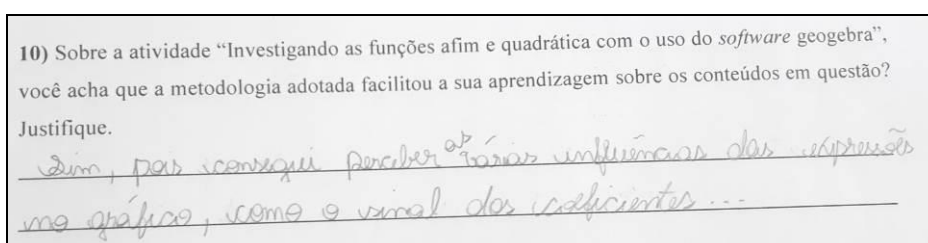 10) Sobre a atividade “Investigando as funções afim e quadrática com o uso do software geogebra”,
você acha que a metodologia adotada facilitou a sua aprendizagem sobre os conteúdos em questão?
Justifique.
Sim, pois consegui perceber as várias influências das expressões
no gráfico, como o sinal dos coeficientes...